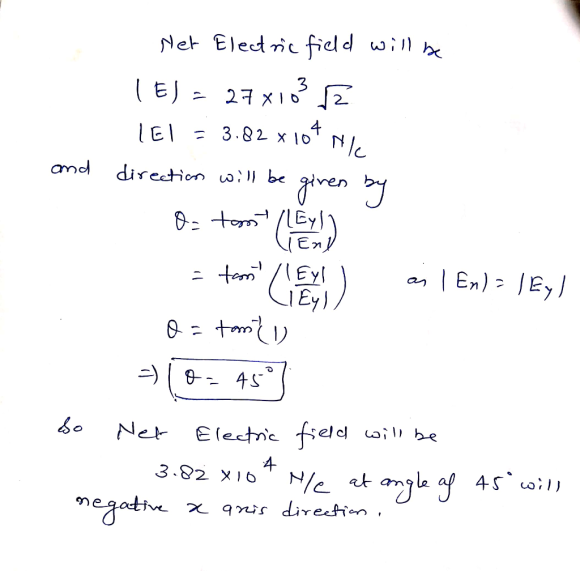 Net Electric field will be
|E| = 27 × 10³ √2
|E| = 3.82 × 10⁴ N/C
and direction will be given by
θ = tan⁻¹ (|Ey| / |Ex|)
= tan⁻¹ (|Ey| / |Ey|) as |Ex| = |Ey|
θ = tan⁻¹(1)
⇒ θ = 45°
So Net Electric field will be
3.82 × 10⁴ N/C at angle of 45° will
negative x axis direction.